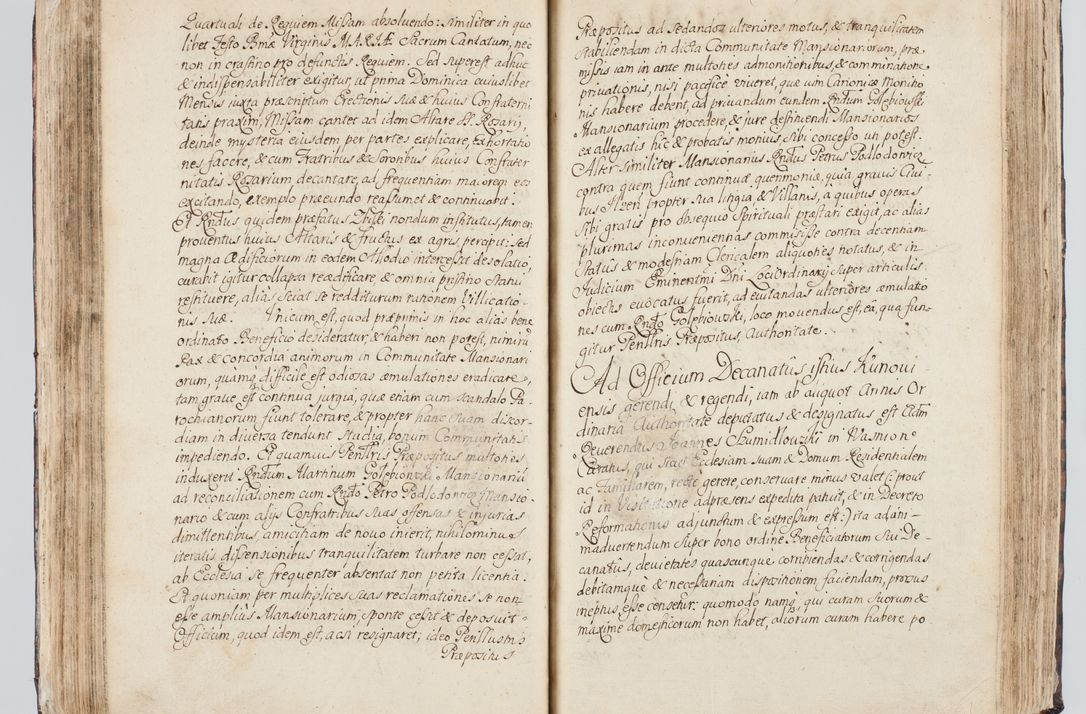 Quartuali de Requiem Missam absolvendo: Similiter in quo
libet Festo Bmæ Virginis MARIÆ Sacrum Cantatum, nec
non in crastino pro defunctis Requiem. Sed superest adhuc
& indispensabiliter exigitur, ut prima Dominica cuiuslibet
Mensis iuxta præscriptum Erectionis suæ & huius Confraterni
tatis praxim, Missam cantet ad idem Altare SS. Rosarij,
deinde mysteria eiusdem per partes explicare, Exhortatio
nes facere, & cum Fratribus & Sororibus huius Confrater
nitatis Rosarium decantare, ad frequentiam maiorem eos
excitando, exemplo præeundo reassumet & continuabit.
Et Rndus quidem præfatus nondum institutus, tamen
proventus huius Altaris & fructus ex agris, percipit: Sed
magna Ædificiorum in eodem Fhodio intercessit desolatio,
curabit igitur collapsa reædificare, & omnia pristino statui
restituere, alias sciat se redditurum rationem Villicatio-
nis suæ. Unicum est, quod præprimis in hoc alias bene
ordinato Beneficio desideratur, & haberi non potest, nimirū
Pax & concordia animorum in Communitate Mansionari
orum, quāmq difficile est odiosas æmulationes eradicare,
tam grave est continua jurgia, quæ etiam cum scandalo Pa-
rochianorum fiunt tolerare, & propter hanc suam discor-
diam in diversa tendunt studia, bonum Communitatis
impediendo. Et quamvis Penltris Præpositus multoties
induxerit Rndum Martinum Gołębiowski Mansionariū
ad reconciliationem cum Rndo Petro Podlodowicz Mansio-
nario & cum alijs Confratribus suas offensas & injurias
dimittentibus, amicitiam de novo inierit, nihilominus
iteratis dissensionibus tranquilitatem turbare non cessat,
ab Ecclesia se frequenter absentat non petita licentia.
Et quoniam per multiplices suas reclamationes se non
esse amplius Mansionarium, sponte cessit & deposuit
Officium, quod idem est, ac si resignaret; ideo Penllustris
Præpositus
Præpositus ad sedandos ulteriores motus, & tranquilitatem
stabiliendam in dicta Communitate Mansionariorum, præ
missis iam in ante multoties admonitionibus, & comminatione
privationis, nisi pacifice viveret, quæ vim Canonicæ Monitio
nis habere debent, ad privandum eundem Rndum Gołębiowski
Mansionarium procedere, & jure destituendi Mansionarios
ex allegatis hic & probatis monius, sibi concesso uti potest.
Alter similiter Mansionarius Rndus Petrus Podlodowicz
contra quem fiunt continuæ querimoniæ, quia gravis Civi-
bus Ilzen propter sua litigia, & Villanis, a quibus operas
sibi gratis pro obsequio Spirituali præstari exigit, ac alias
plurimas inconvenientias commisisse contra decentiam
status & modestiam Clericalem aliquoties notatus, & in
Judicium Eminentmi Dni Loci Ordinarij super articulis
obiectis evocatus fuerit, ad evitandas ulteriores æmulatio
nes cum Rndo Gołębiowski, loco movendus est, ea, qua fun-
gitur Penltris Præpositus, Authoritate.
Ad Officium Decanatus istius Kunovi-
ensis gerendi & regendi, iam ab aliquot Annis Or
dinaria Authoritate deputatus & designatus est Adm
Reverendus Joannes Szumidlowski in Wasniow
Curatus, qui suam Ecclesiam suam & Domum Residentialem
ac Familiarem, recte gerere, conservare minus valet (: prout
id in Visitatione adpræsens expedita patuit, & in Decreto
Reformationis adjunctum & expressum est:) ita ad ani-
madvertendum super bono ordine Beneficiatorum sui De-
canatus, devietates quascunque corribiendas & corrigendas
debitamque & necessariam dispositionem faciendam, prorsus
ineptus esse censetur: quomodo namq, qui curam suorum &
maxime domesticorum non habet, aliorum curam habere po